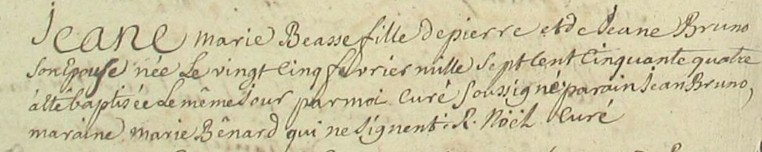 Jeane marie Beasse fille de pierre et de Jeane Bruno
son Epouse née Le vingt Cinq fevrier mille Sept Cent Cinquante quatre
a été baptisée Le même Jour par moi Curé Soussigné parain Jean Bruno,
maraine marie Bénard qui ne Signent. R. Nöël Curé